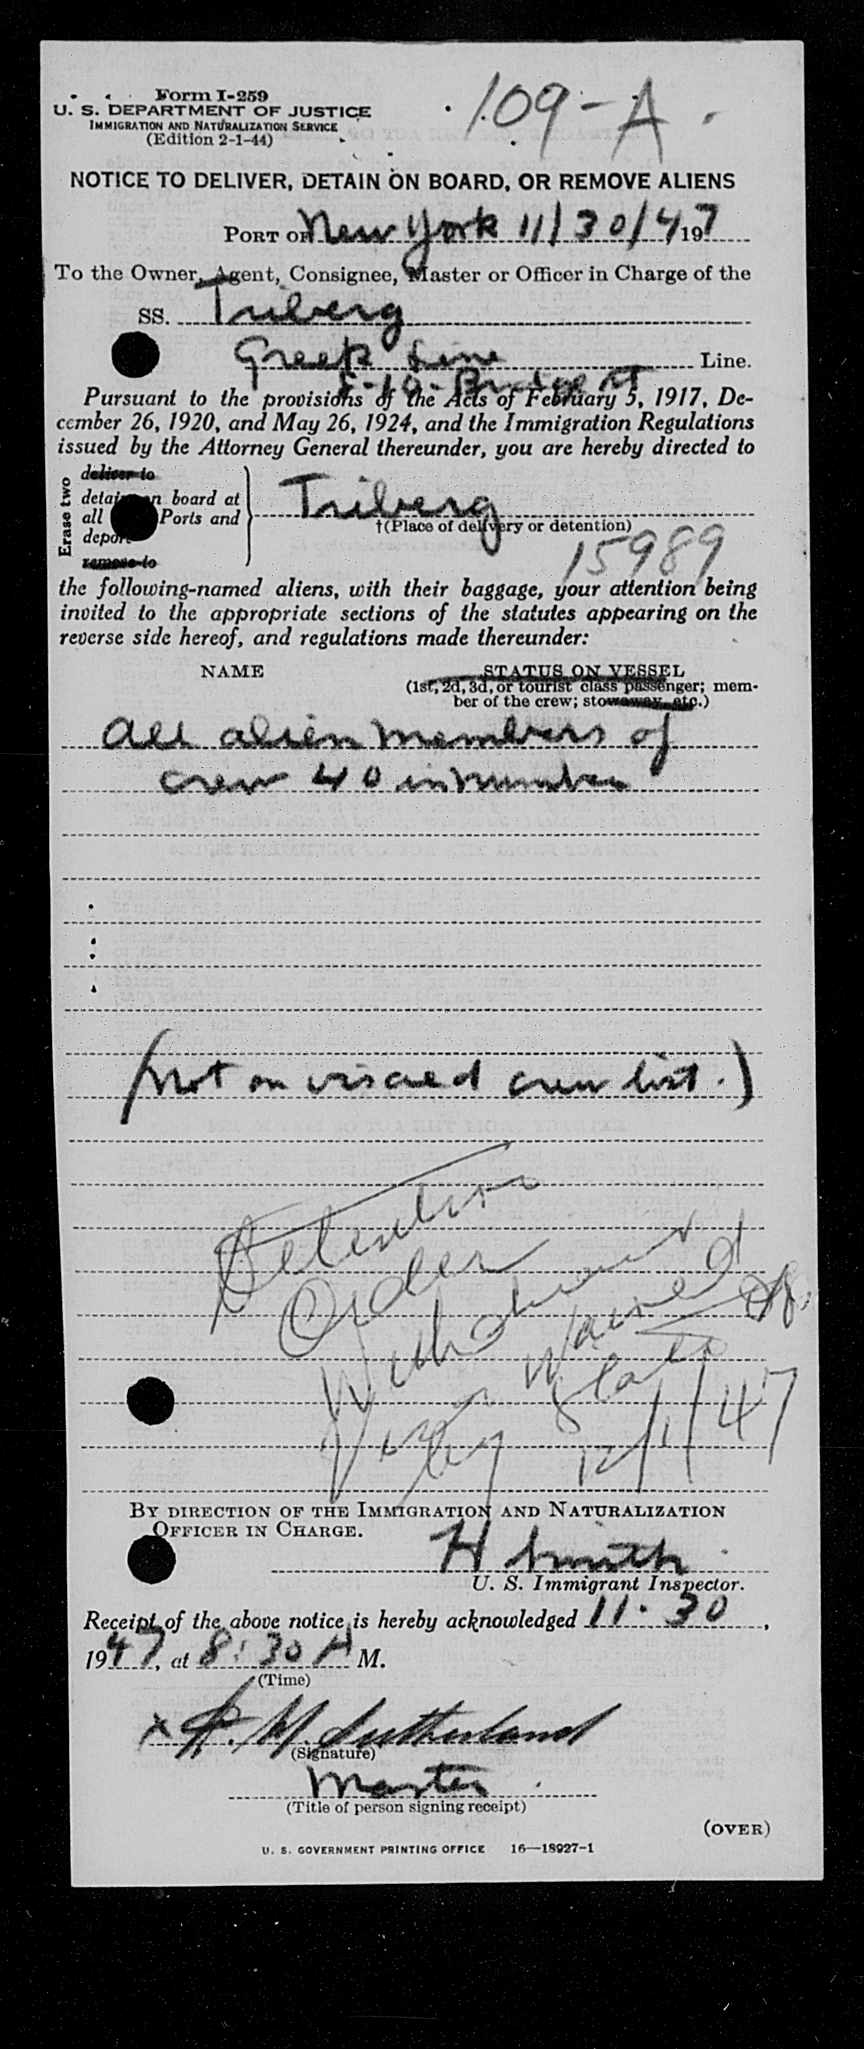 Form I-259
U. S. DEPARTMENT OF JUSTICE
IMMIGRATION AND NATURALIZATION SERVICE
(Edition 2-1-44)
109-A
NOTICE TO DELIVER, DETAIN ON BOARD, OR REMOVE ALIENS
PORT OF New York 11/30/4 197
To the Owner, Agent, Consignee, Master or Officer in Charge of the
SS. Triberg
Greek Line Line.
8-10- Bridge ST
Pursuant to the provisions of the Acts of February 5, 1917, De-
cember 26, 1920, and May 26, 1924, and the Immigration Regulations
issued by the Attorney General thereunder, you are hereby directed to
Erase two
deliver to
detain on board at
all Ports and
deport
remove to
Triberg
†(Place of delivery or detention)
15989
the following-named aliens, with their baggage, your attention being
invited to the appropriate sections of the statutes appearing on the
reverse side hereof, and regulations made thereunder:
NAME STATUS ON VESSEL
(1st, 2d, 3d, or tourist class passenger; mem-
ber of the crew; stowaway, etc.)
All alien members of
crew 40 in number
(Not on visaed crew list.)
Detention
Order
Withdrawn
Visa Waived
by State
12/1/47
BY DIRECTION OF THE IMMIGRATION AND NATURALIZATION
OFFICER IN CHARGE.
H Smith
U. S. Immigrant Inspector.
Receipt of the above notice is hereby acknowledged 11-30,
1947, at 8:30 A M.
(Time)
x R. M. Sutherland
(Signature)
Master
(Title of person signing receipt)
(OVER)
U. S. GOVERNMENT PRINTING OFFICE 16—18927-1